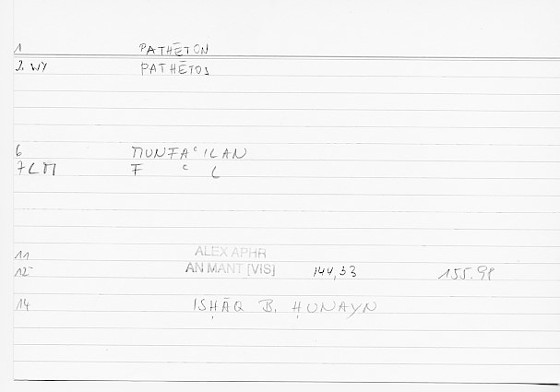 1 PATHĒTON
2. WY PATHĒTOS
6 MUNFAʿILAN
7 LM F ʿ L
11 ALEX APHR
12 AN MANT [VIS] 144,33 155.9
14 ISḤĀQ B. ḤUNAYN